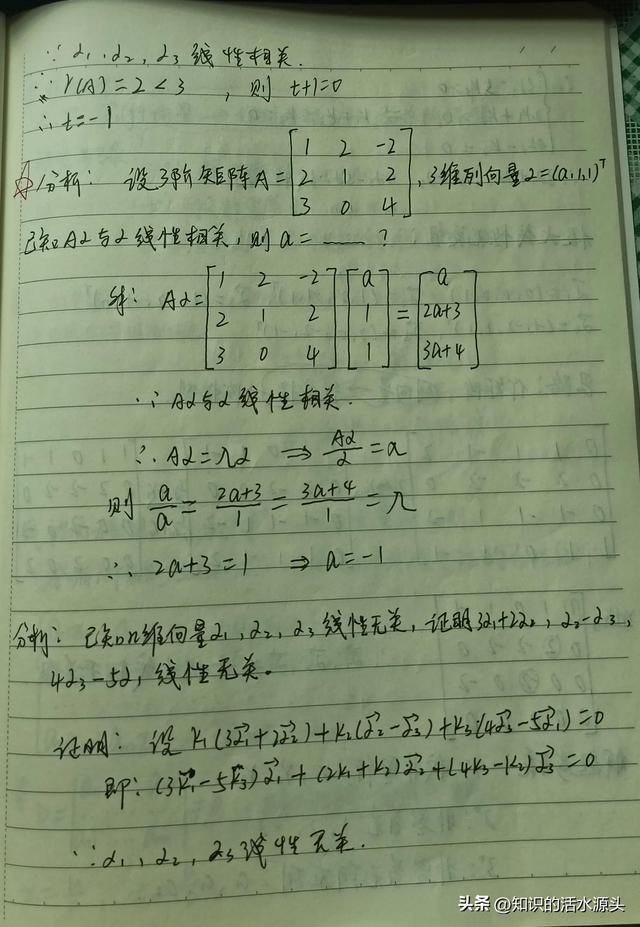 ∵ α₁, α₂, α₃ 线性相关.
∴ r(A)=2<3 , 则 t+1=0
∴ t=-1
☆分析: 设3阶矩阵A=[1 2 -2; 2 1 2; 3 0 4], 3维列向量α=(a,1,1)ᵀ
已知Aα与α线性相关, 则a=____?
解: Aα=[1 2 -2; 2 1 2; 3 0 4][a; 1; 1]=[a; 2a+3; 3a+4]
∵ Aα与α线性相关.
∴ Aα=λα ⇒ Aα/α=a
则 a/a = (2a+3)/1 = (3a+4)/1 = λ
∴ 2a+3=1 ⇒ a=-1
分析: 已知n维向量α₁, α₂, α₃线性无关, 证明3α₁+2α₂, α₂-α₃,
4α₃-5α₁线性无关。
证明: 设 k₁(3α₁+2α₂)+k₂(α₂-α₃)+k₃(4α₃-5α₁)=0
即: (3k₁-5k₃)α₁+(2k₁+k₂)α₂+(4k₃-k₂)α₃=0
∵ α₁, α₂, α₃线性无关.
头条 @知识的活水源头